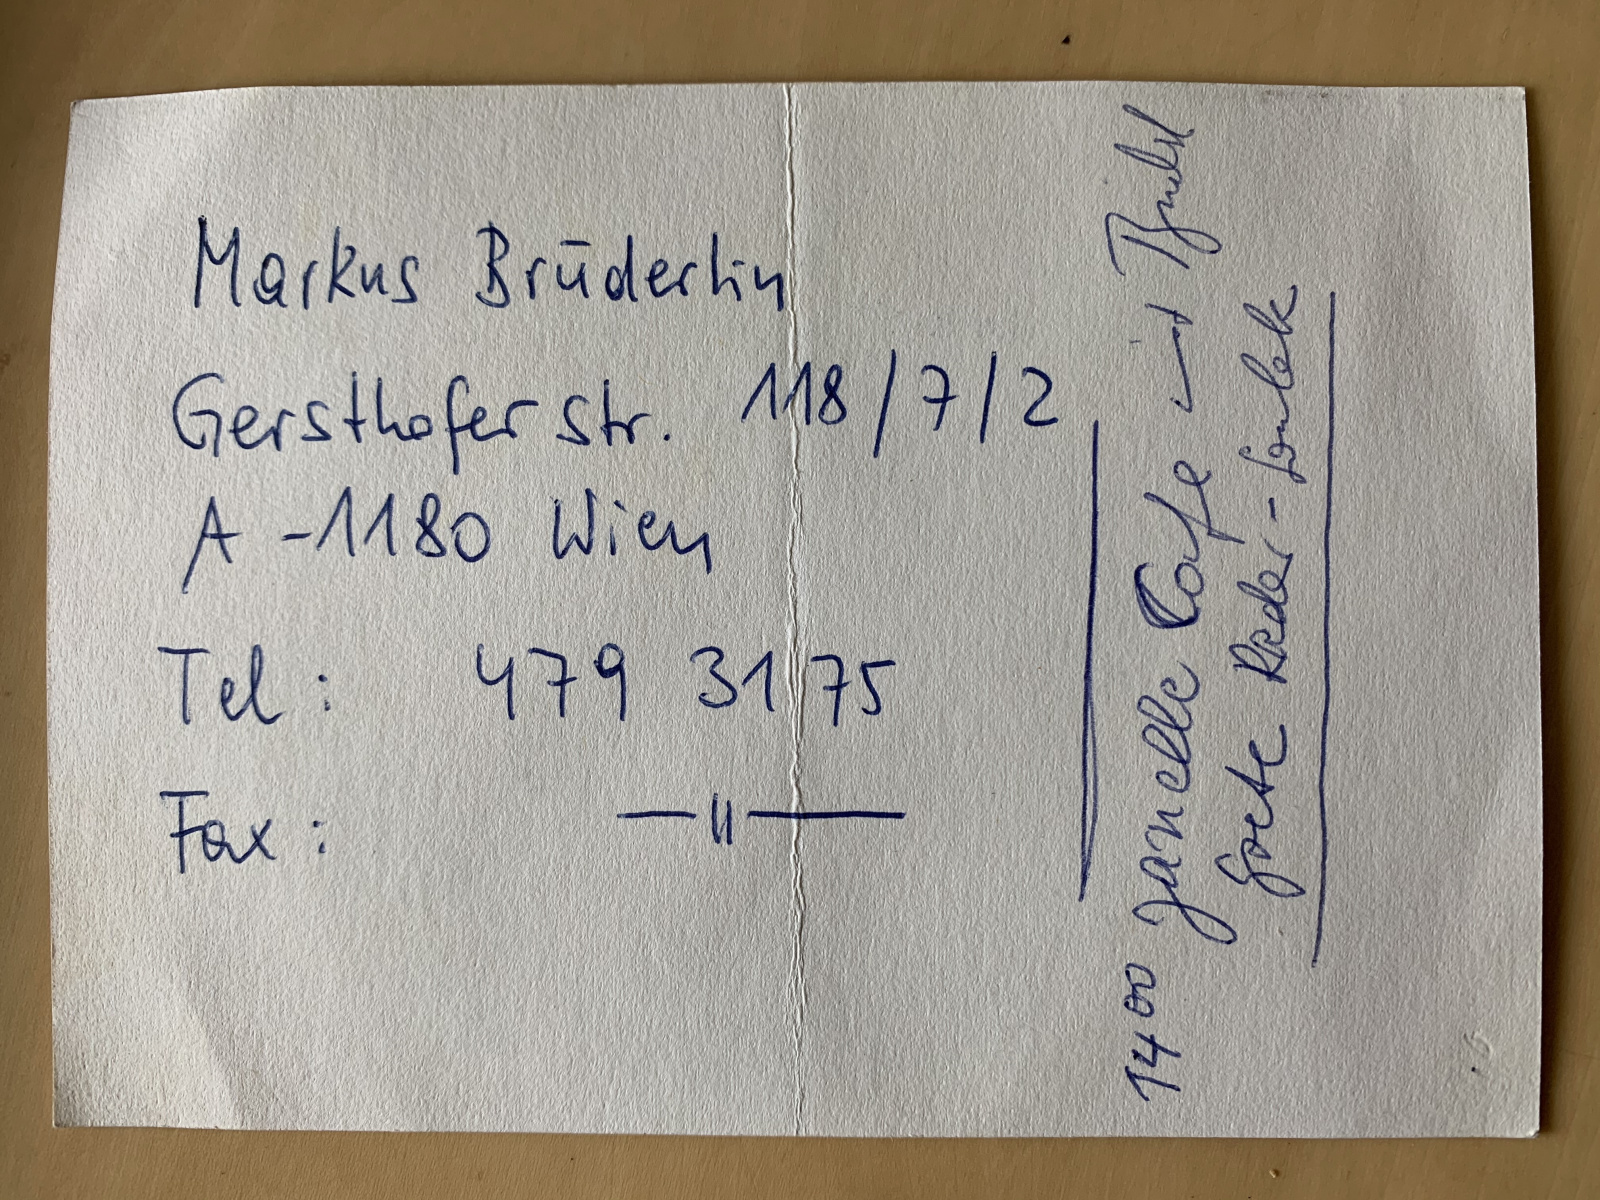 Markus Brüderlin
Gersthoferstr. 118/7/2
A -1180 Wien
Tel: 479 31 75
Fax: —"—
14 00 Janelle Cafe mit
Goete Rieder-